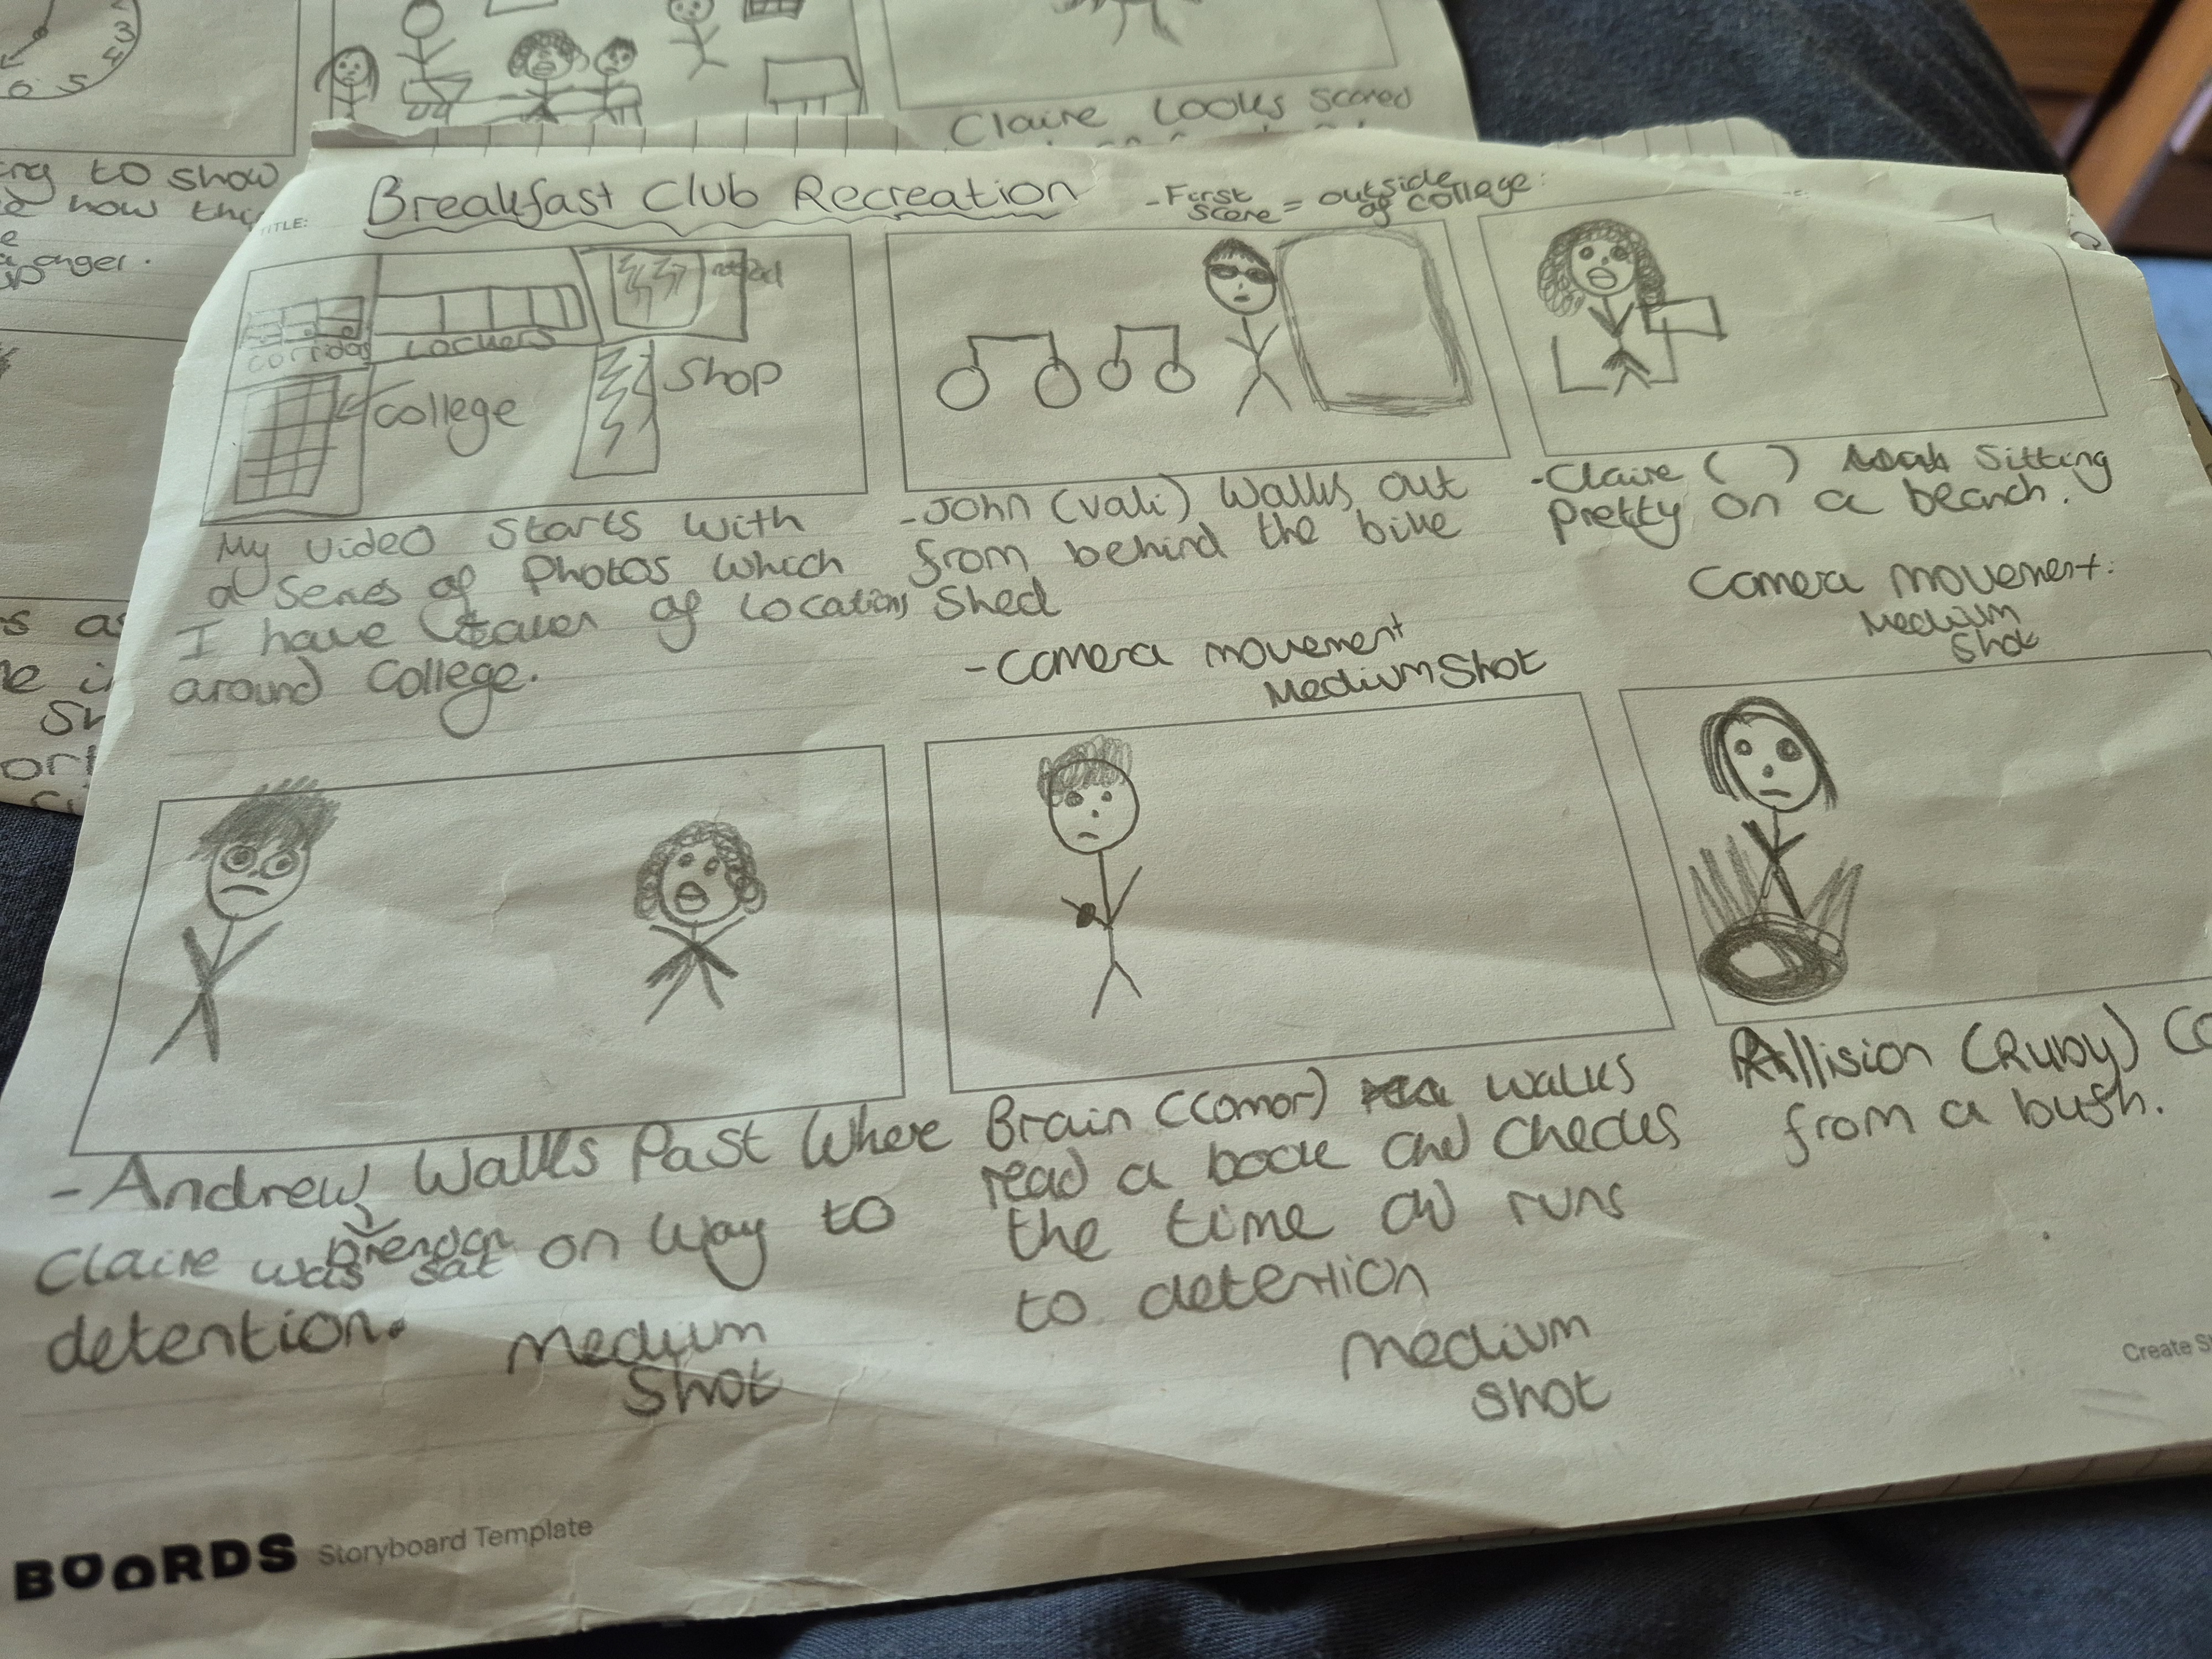 6 5 4 3
Claire Looks Scared
ing to show
how this
anger.
TITLE: Breakfast Club Recreation
-First scene = outside of College:
corridor
Lockers
College
Shop
My video starts with
a series of Photos which
I have taken of Locations
around College.
-John (Vali) Walks out
from behind the bike
Shed
-Camera movement
Medium Shot
-Claire ( ) Sitting
Pretty on a beanch.
Camera movement:
Medium
Shot
-Andrew Walks Past Where
Brendan
Claire was sat on way to
detention.
Medium
Shot
Brain (Conor) walks
read a book and checks
the time and runs
to detention
Medium
shot
Allision (Ruby)
from a bush.
Create
BOORDS Storyboard Template